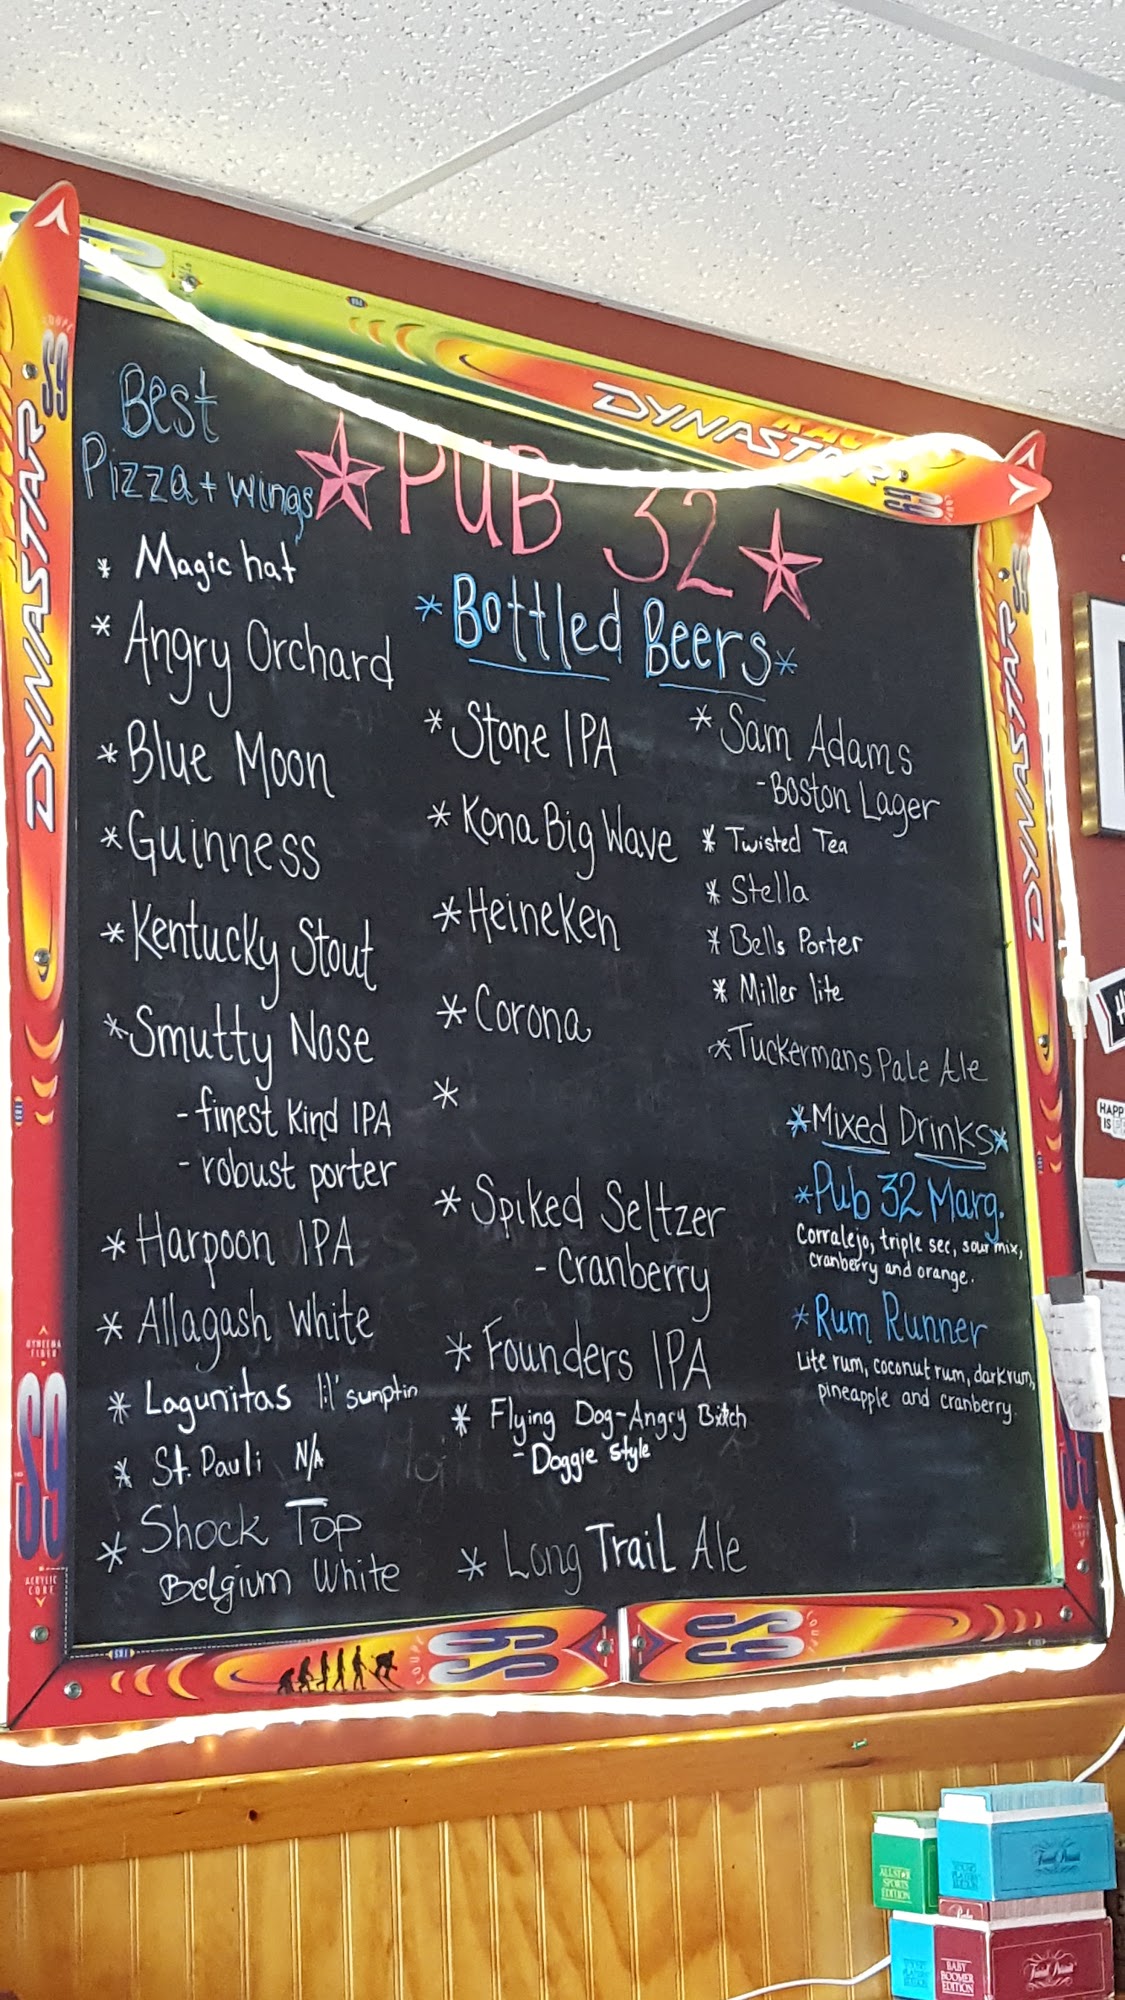 Best
Pizza + wings
PUB 32
* Bottled Beers *
* Magic hat
* Angry Orchard
* Blue Moon
* Guinness
* Kentucky Stout
* Smutty Nose
- finest Kind IPA
- robust porter
* Harpoon IPA
* Allagash White
* Lagunitas lil' sumptin
* St. Pauli N/A
* Shock Top
Belgium White
* Stone IPA
* Kona Big Wave
* Heineken
* Corona
*
* Spiked Seltzer
- Cranberry
* Founders IPA
* Flying Dog-Angry B*tch
- Doggie Style
* Long Trail Ale
* Sam Adams
- Boston Lager
* Twisted Tea
* Stella
* Bells Porter
* Miller lite
* Tuckermans Pale Ale
* Mixed Drinks *
* Pub 32 Marg.
Corralejo, triple sec, sour mix,
cranberry and orange.
* Rum Runner
Lite rum, coconut rum, dark rum,
pineapple and cranberry.
DYNASTAR
DYNASTAR
DYNASTAR
DYNASTAR
DYNASTAR
S9
S9
S9
S9
HAPP
IS
ALLSTAR
SPORTS
EDITION
BABY
BOOMER
EDITION
Trivial Pursuit
Trivial Pursuit